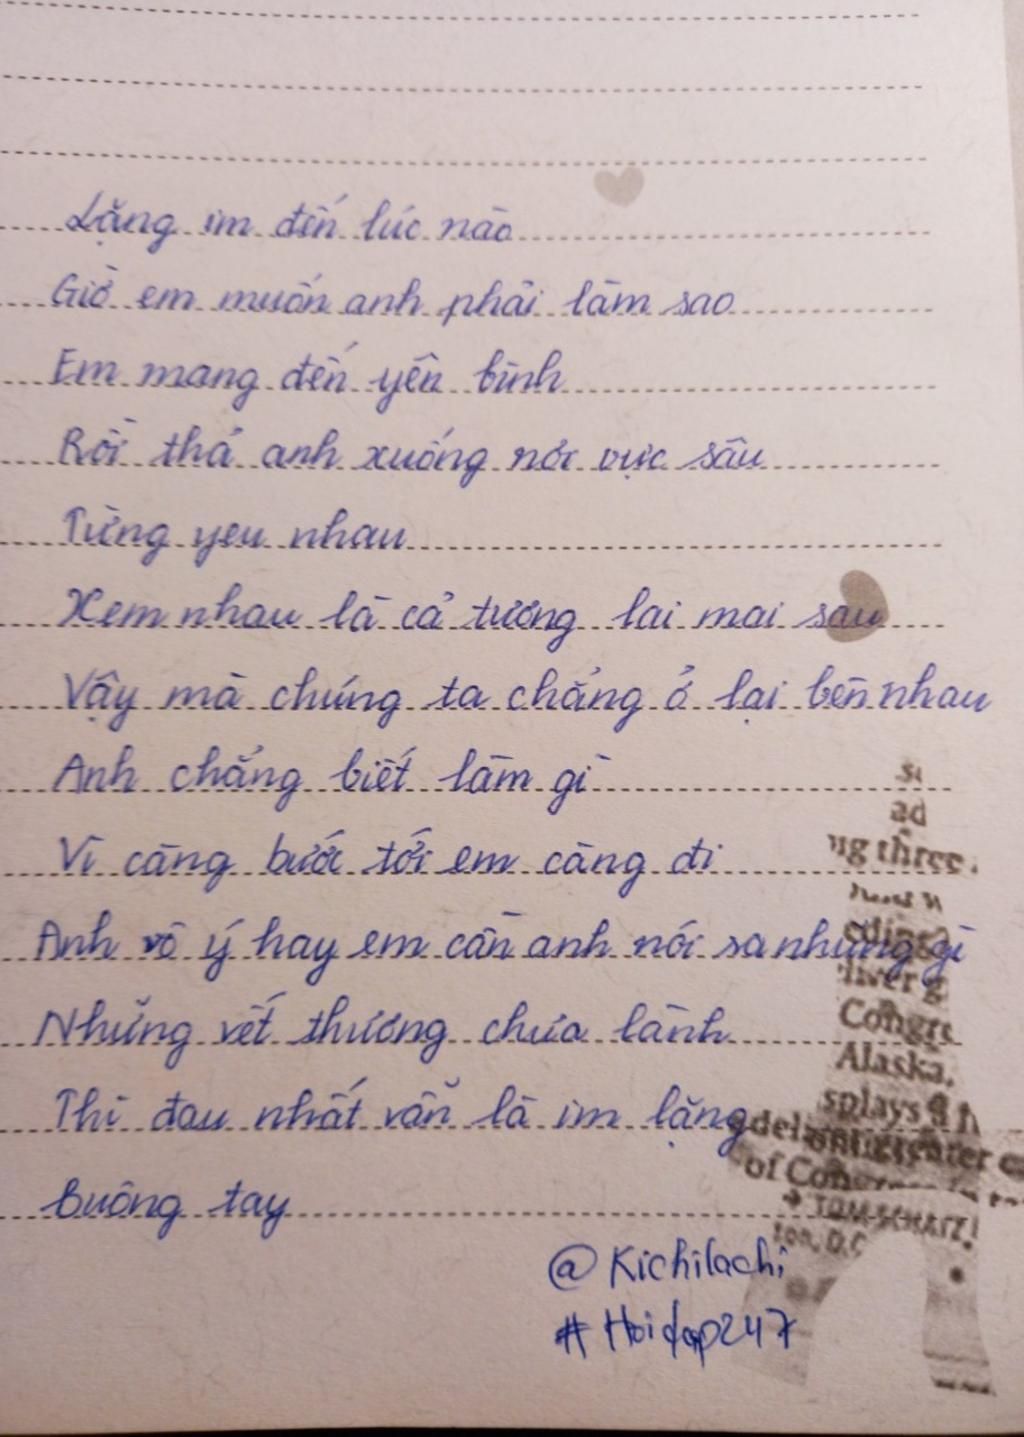 Lặng im đến lúc nào
Giờ em muốn anh phải làm sao
Em mang đến yên bình
Rồi thả anh xuống nơi vực sâu
Từng yeu nhau
Xem nhau là cả tương lai mai sau
Vậy mà chúng ta chẳng ở lại bên nhau
Anh chẳng biết làm gì
Vì càng bước tới em càng đi
Anh vô ý hay em cần anh nói sa những gì
Những vết thương chưa lành
Thì đau nhất vẫn là im lặng
buông tay
@Kichilachi
#Hoidap247
ad
ng three
liver g
Congre
Alaska,
splays a h
of Con
TOM SCHATZ
ton, D.C